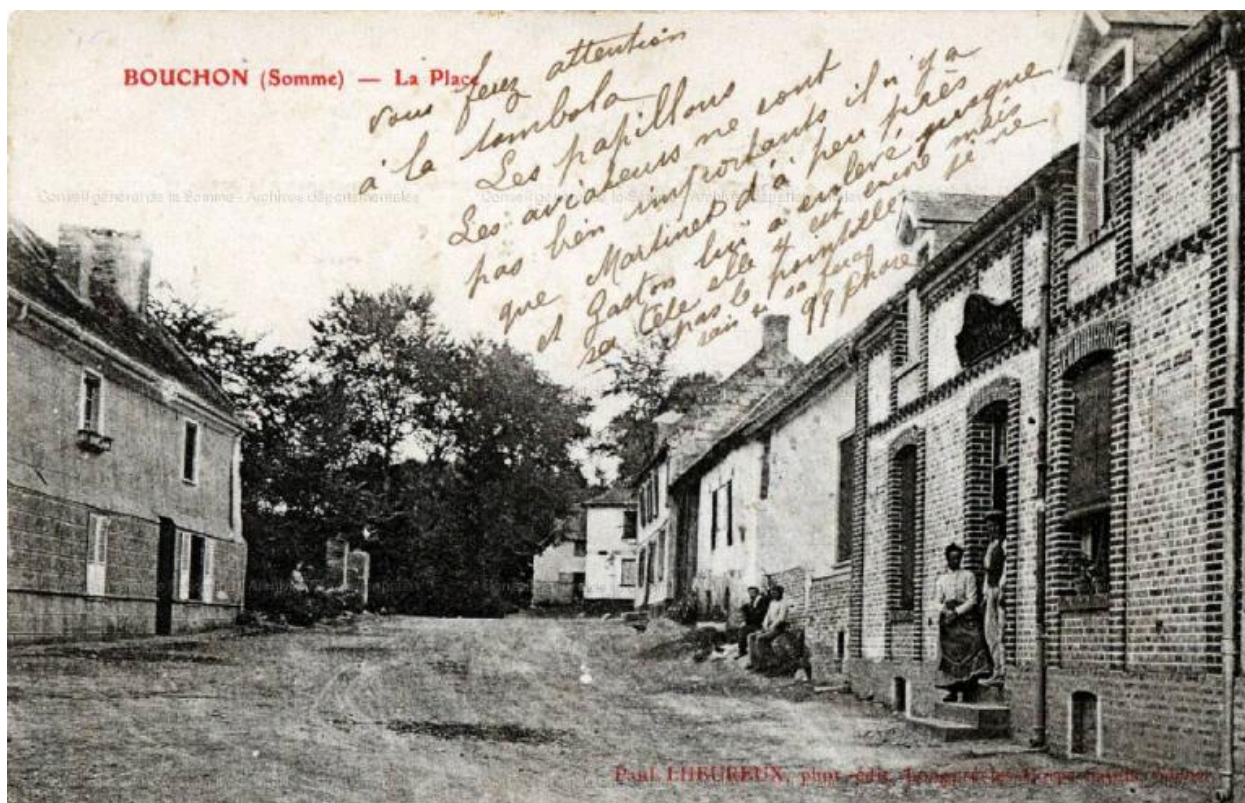 BOUCHON (Somme) — La Place
vous ferez attention
à la tombola
Les papillons
Les aviateurs ne sont
pas bien importants il n'y a
que Martinet à peu près
et Gaston lui a enlevé presque
sa tête elle y est encore mais
pas le pointillé je ne
sais si sa fera
Conseil général de la Somme - Archives départementales
Paul LHEUREUX, phot.-édit., Longpré-les-Corps-Saints